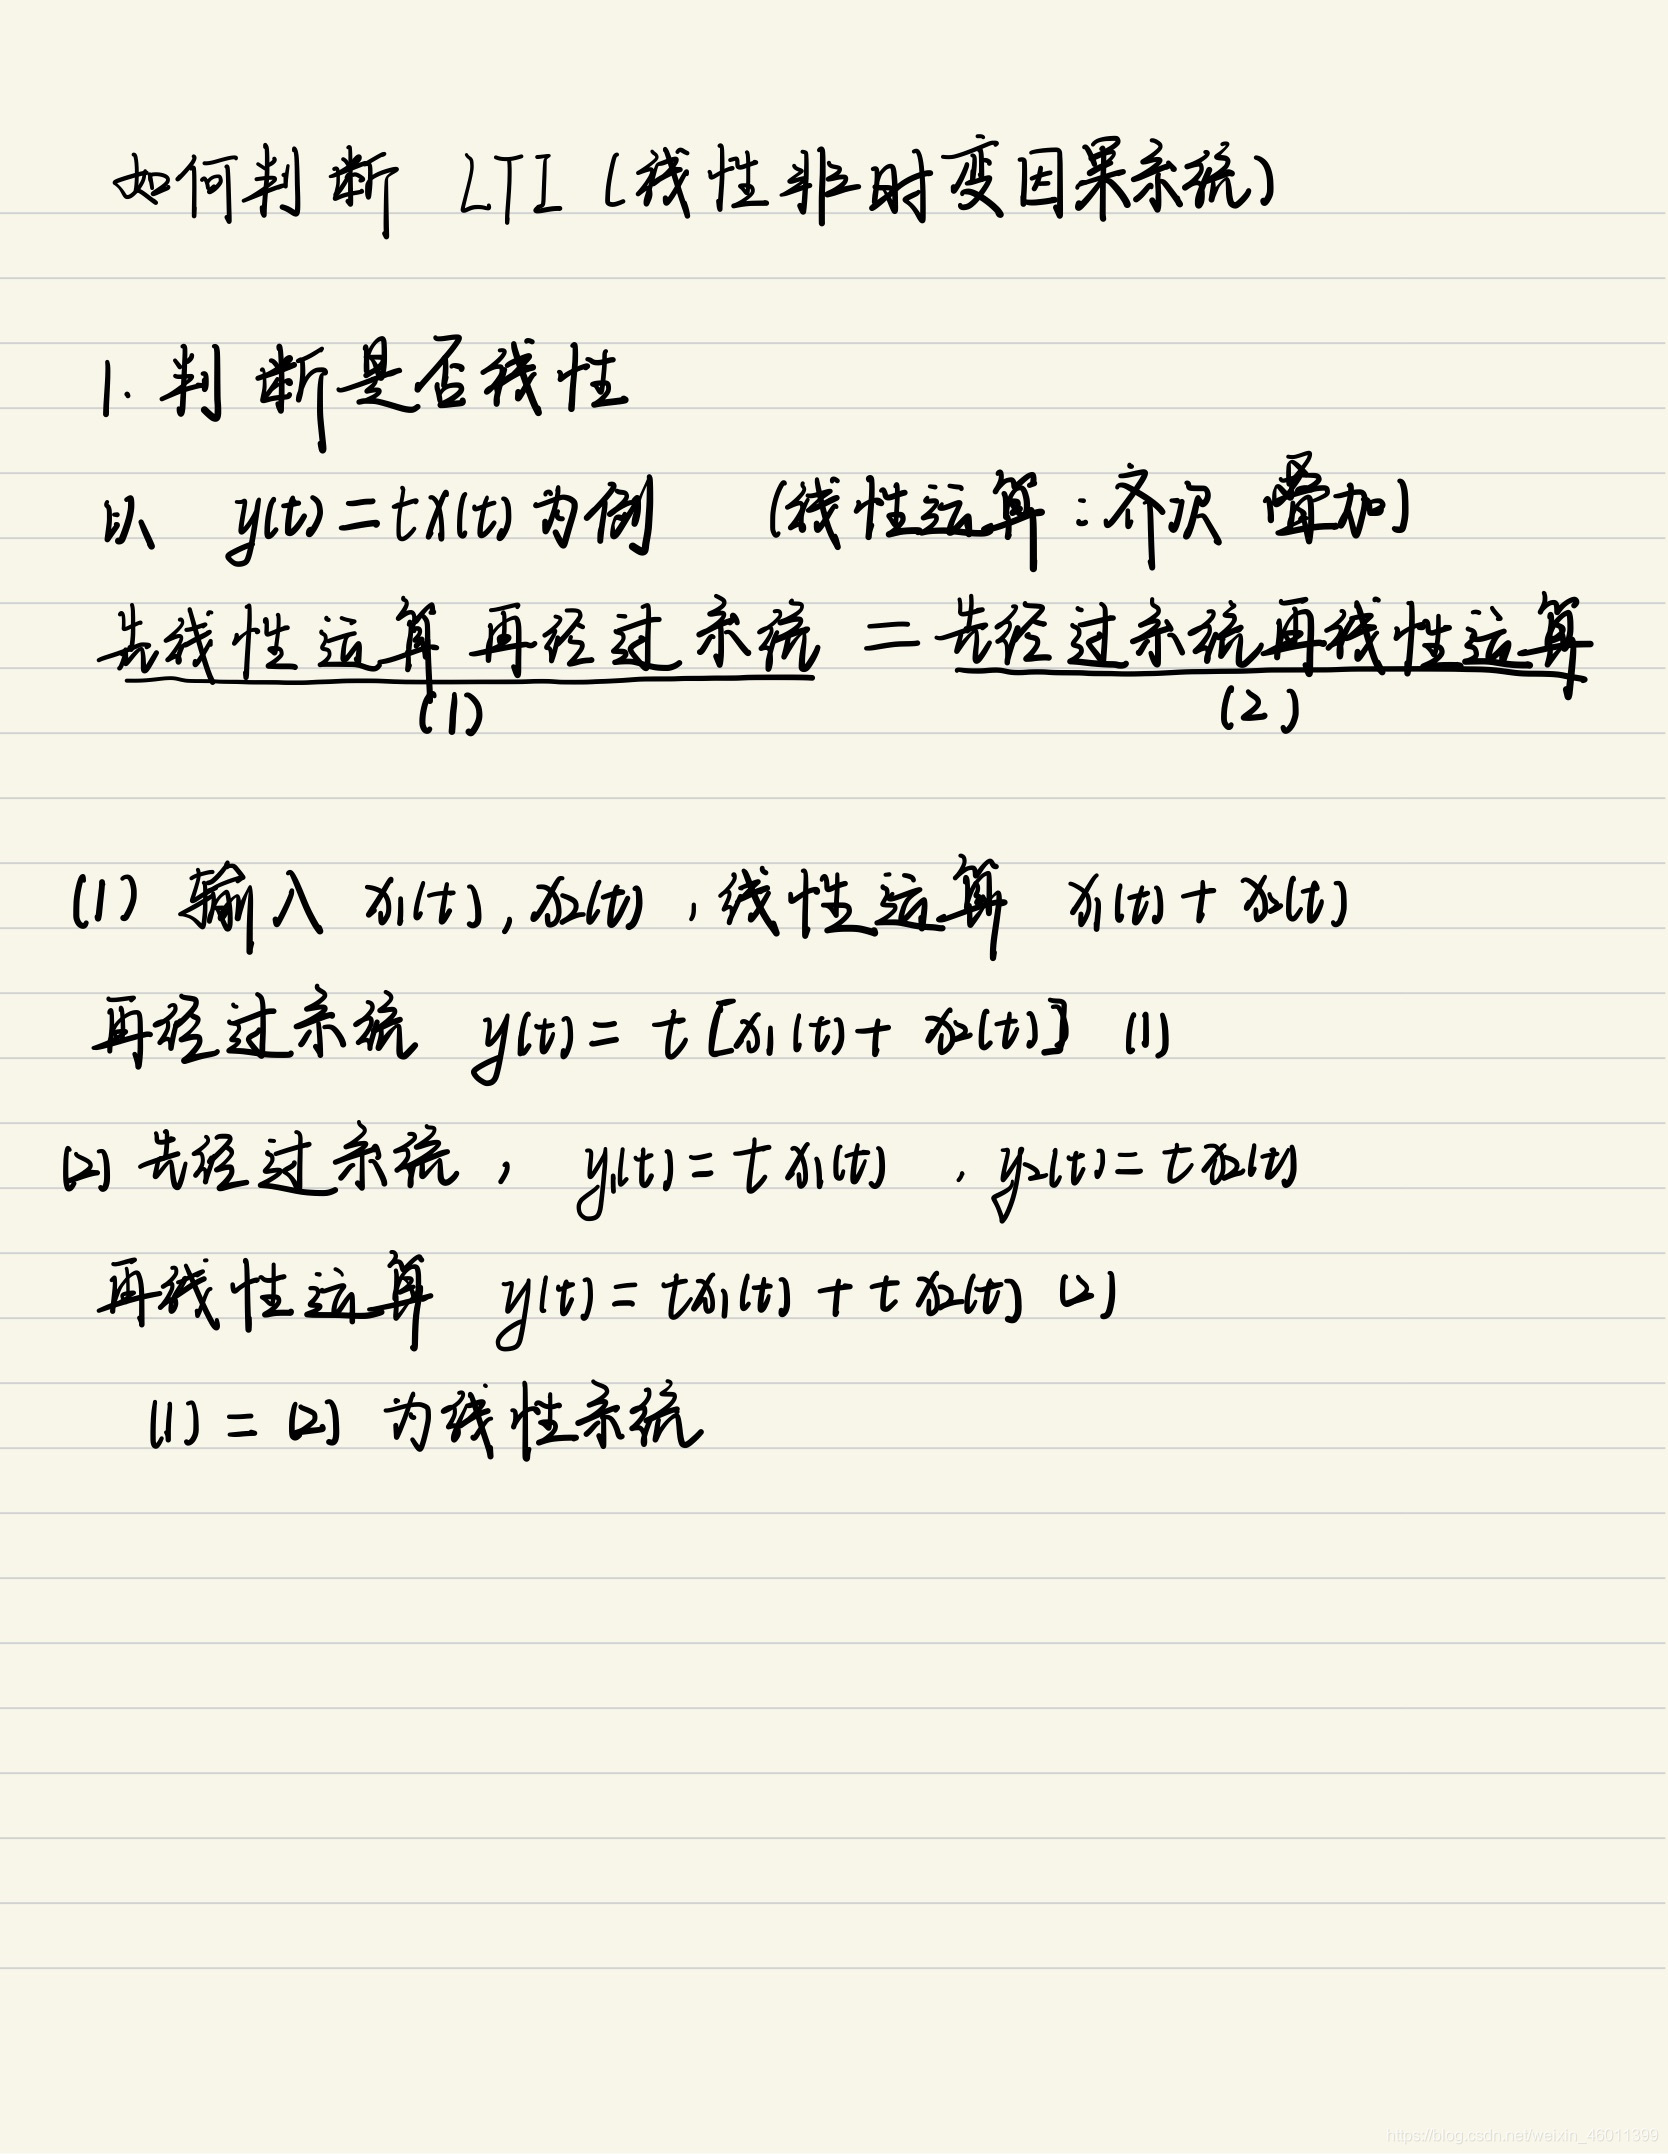 如何判断 LTI (线性非时变因果系统)
1. 判断是否线性
以 y(t)=tx(t)为例 (线性运算:齐次 叠加)
先线性运算再经过系统 = 先经过系统再线性运算
(1) (2)
(1) 输入 x1(t), x2(t), 线性运算 x1(t)+x2(t)
再经过系统 y(t)= t[x1(t)+ x2(t)] (1)
(2) 先经过系统, y1(t)=tx1(t) , y2(t)=tx2(t)
再线性运算 y(t)=tx1(t)+tx2(t) (2)
(1)=(2) 为线性系统
https://blog.csdn.net/weixin_46011399